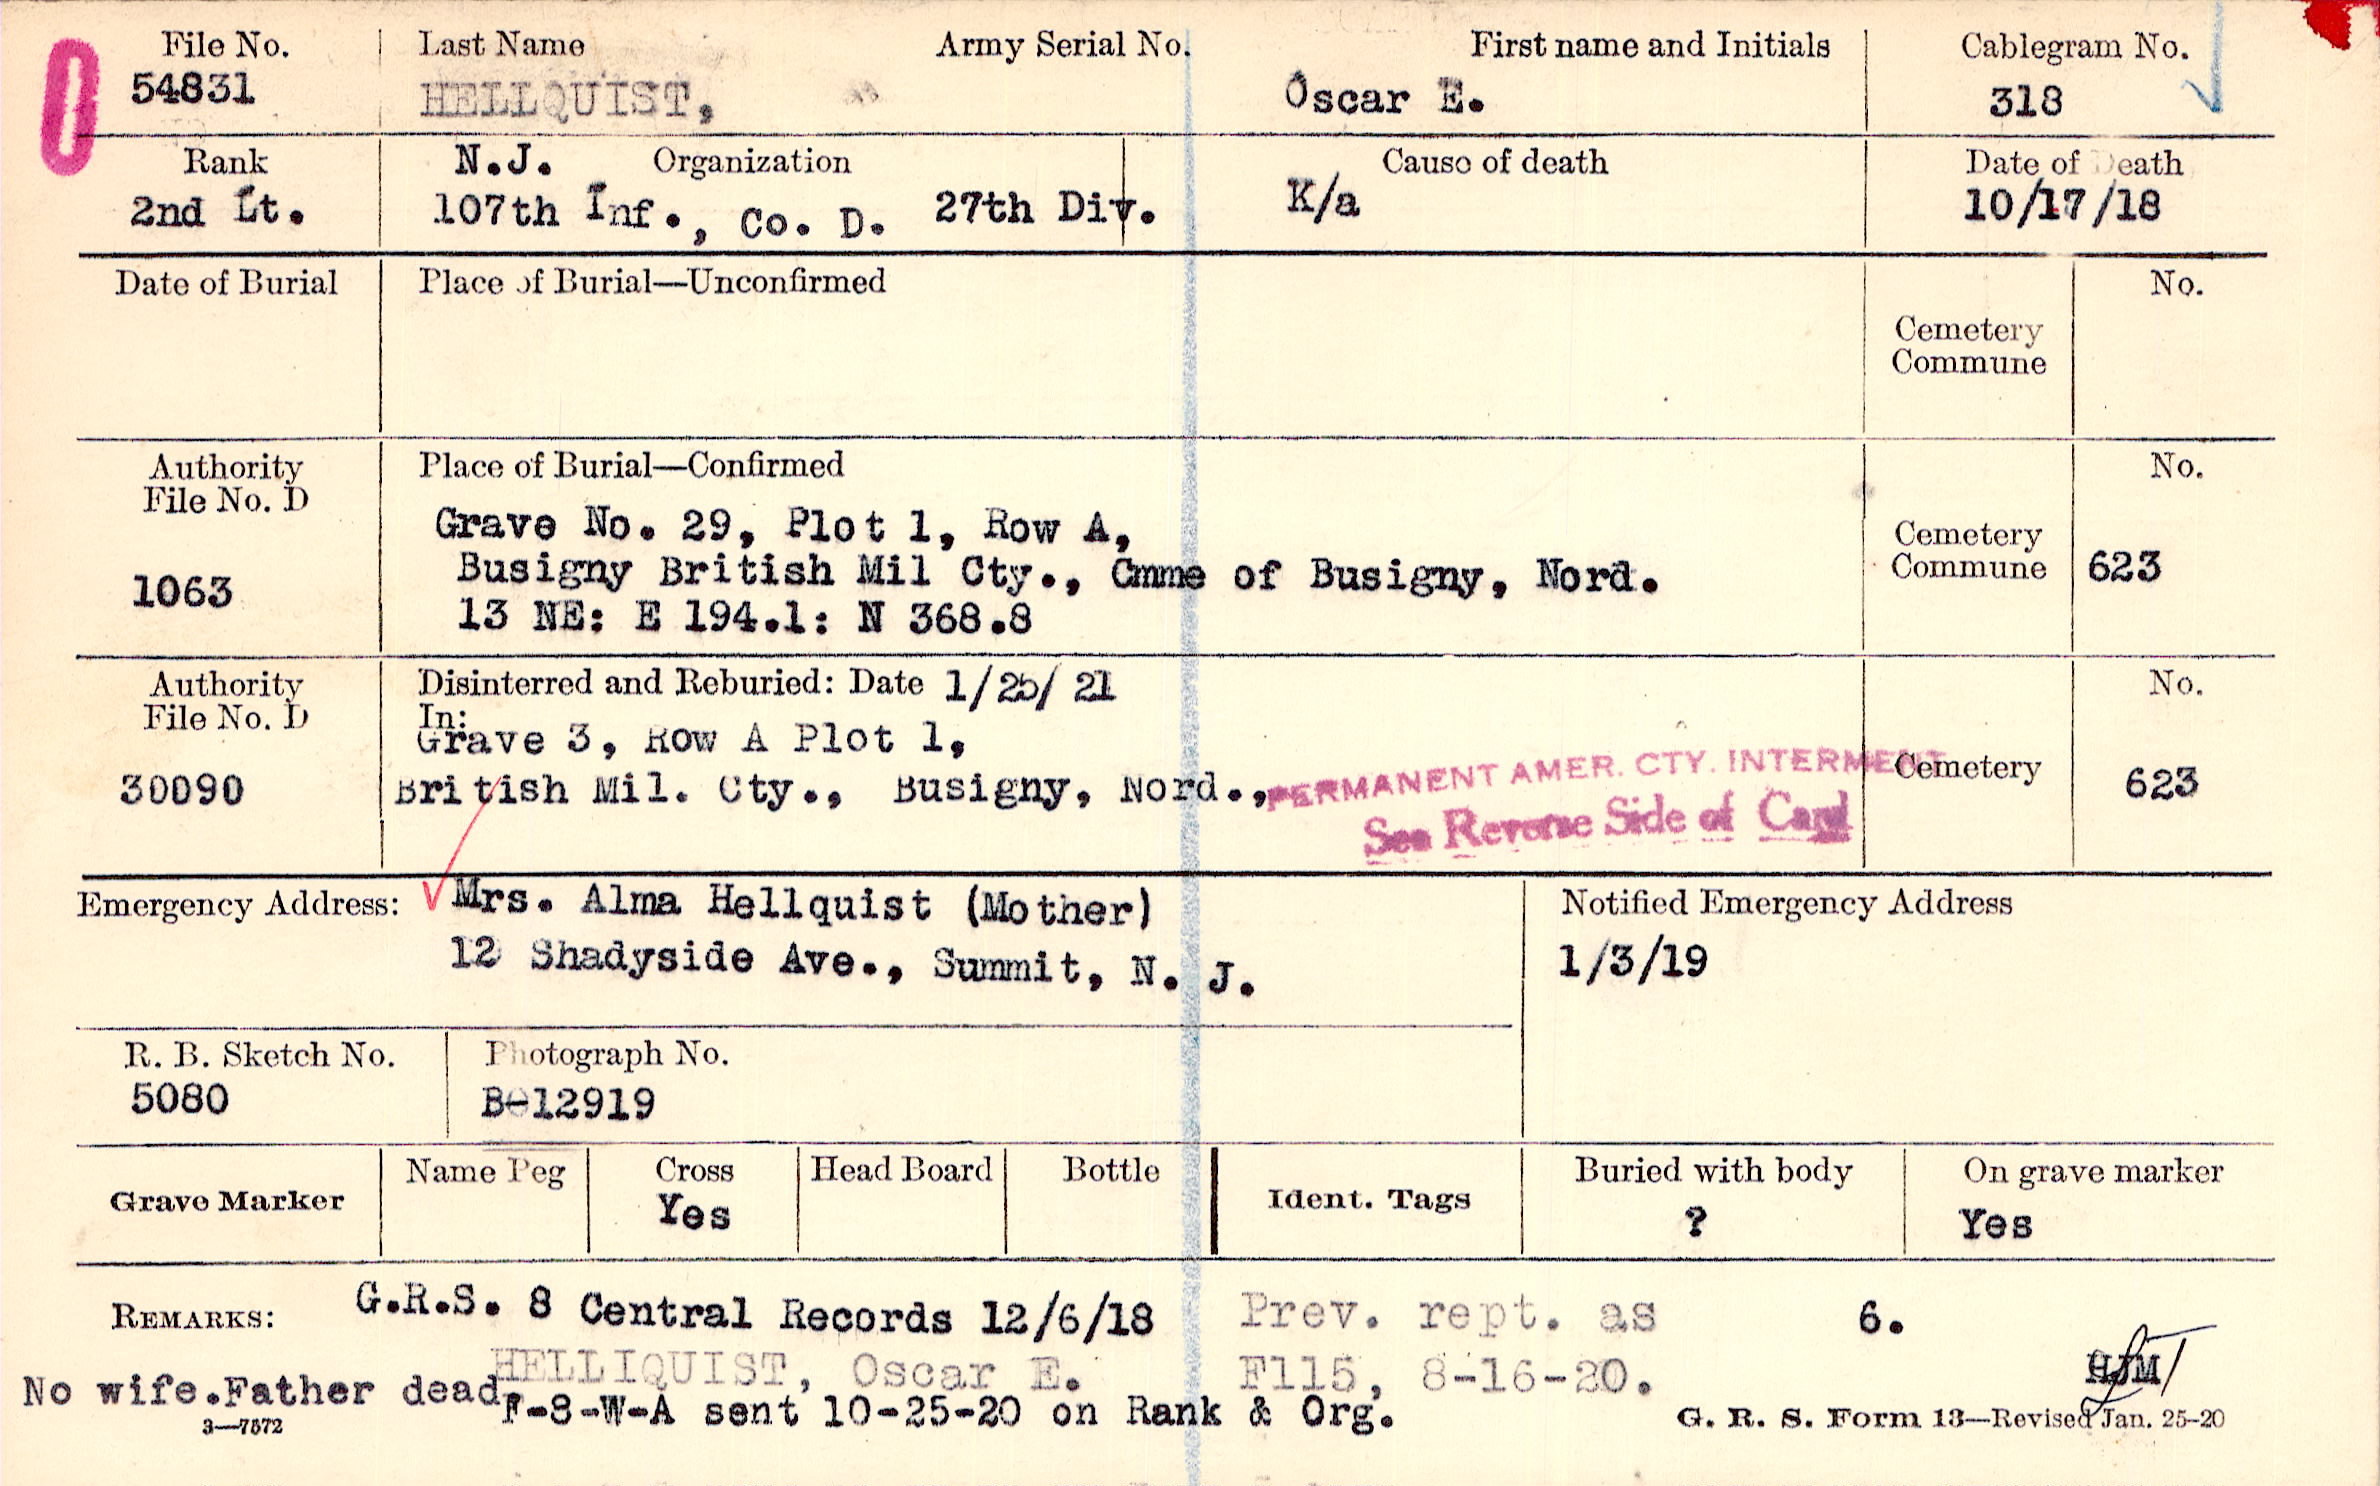 File No. Last Name Army Serial No. First name and Initials Cablegram No.
54831 HELLQUIST, Oscar E. 318
Rank N.J. Organization Cause of death Date of Death
2nd Lt. 107th Inf., Co. D. 27th Div. K/a 10/17/18
Date of Burial Place of Burial—Unconfirmed No.
Cemetery
Commune
Authority Place of Burial—Confirmed No.
File No. D
Grave No. 29, Plot 1, Row A,
Cemetery
Busigny British Mil Cty., Cmme of Busigny, Nord. Commune 623
1063
13 NE: E 194.1: N 368.8
Authority Disinterred and Reburied: Date 1/25/ 21 No.
File No. D In:
Grave 3, Row A Plot 1,
30090 British Mil. Cty., Busigny, Nord., PERMANENT AMER. CTY. INTERMENT Cemetery 623
See Reverse Side of Card
Emergency Address: Mrs. Alma Hellquist (Mother) Notified Emergency Address
12 Shadyside Ave., Summit, N. J. 1/3/19
R. B. Sketch No. Photograph No.
5080 B-12919
Grave Marker Name Peg Cross Head Board Bottle Ident. Tags Buried with body On grave marker
Yes ? Yes
REMARKS: G.R.S. 8 Central Records 12/6/18 Prev. rept. as 6.
HELLIQUIST, Oscar E. F115, 8-16-20. HJM
No wife.Father dead, F-8-W-A sent 10-25-20 on Rank & Org.
3—7572 G. R. S. Form 13—Revised Jan. 25-20